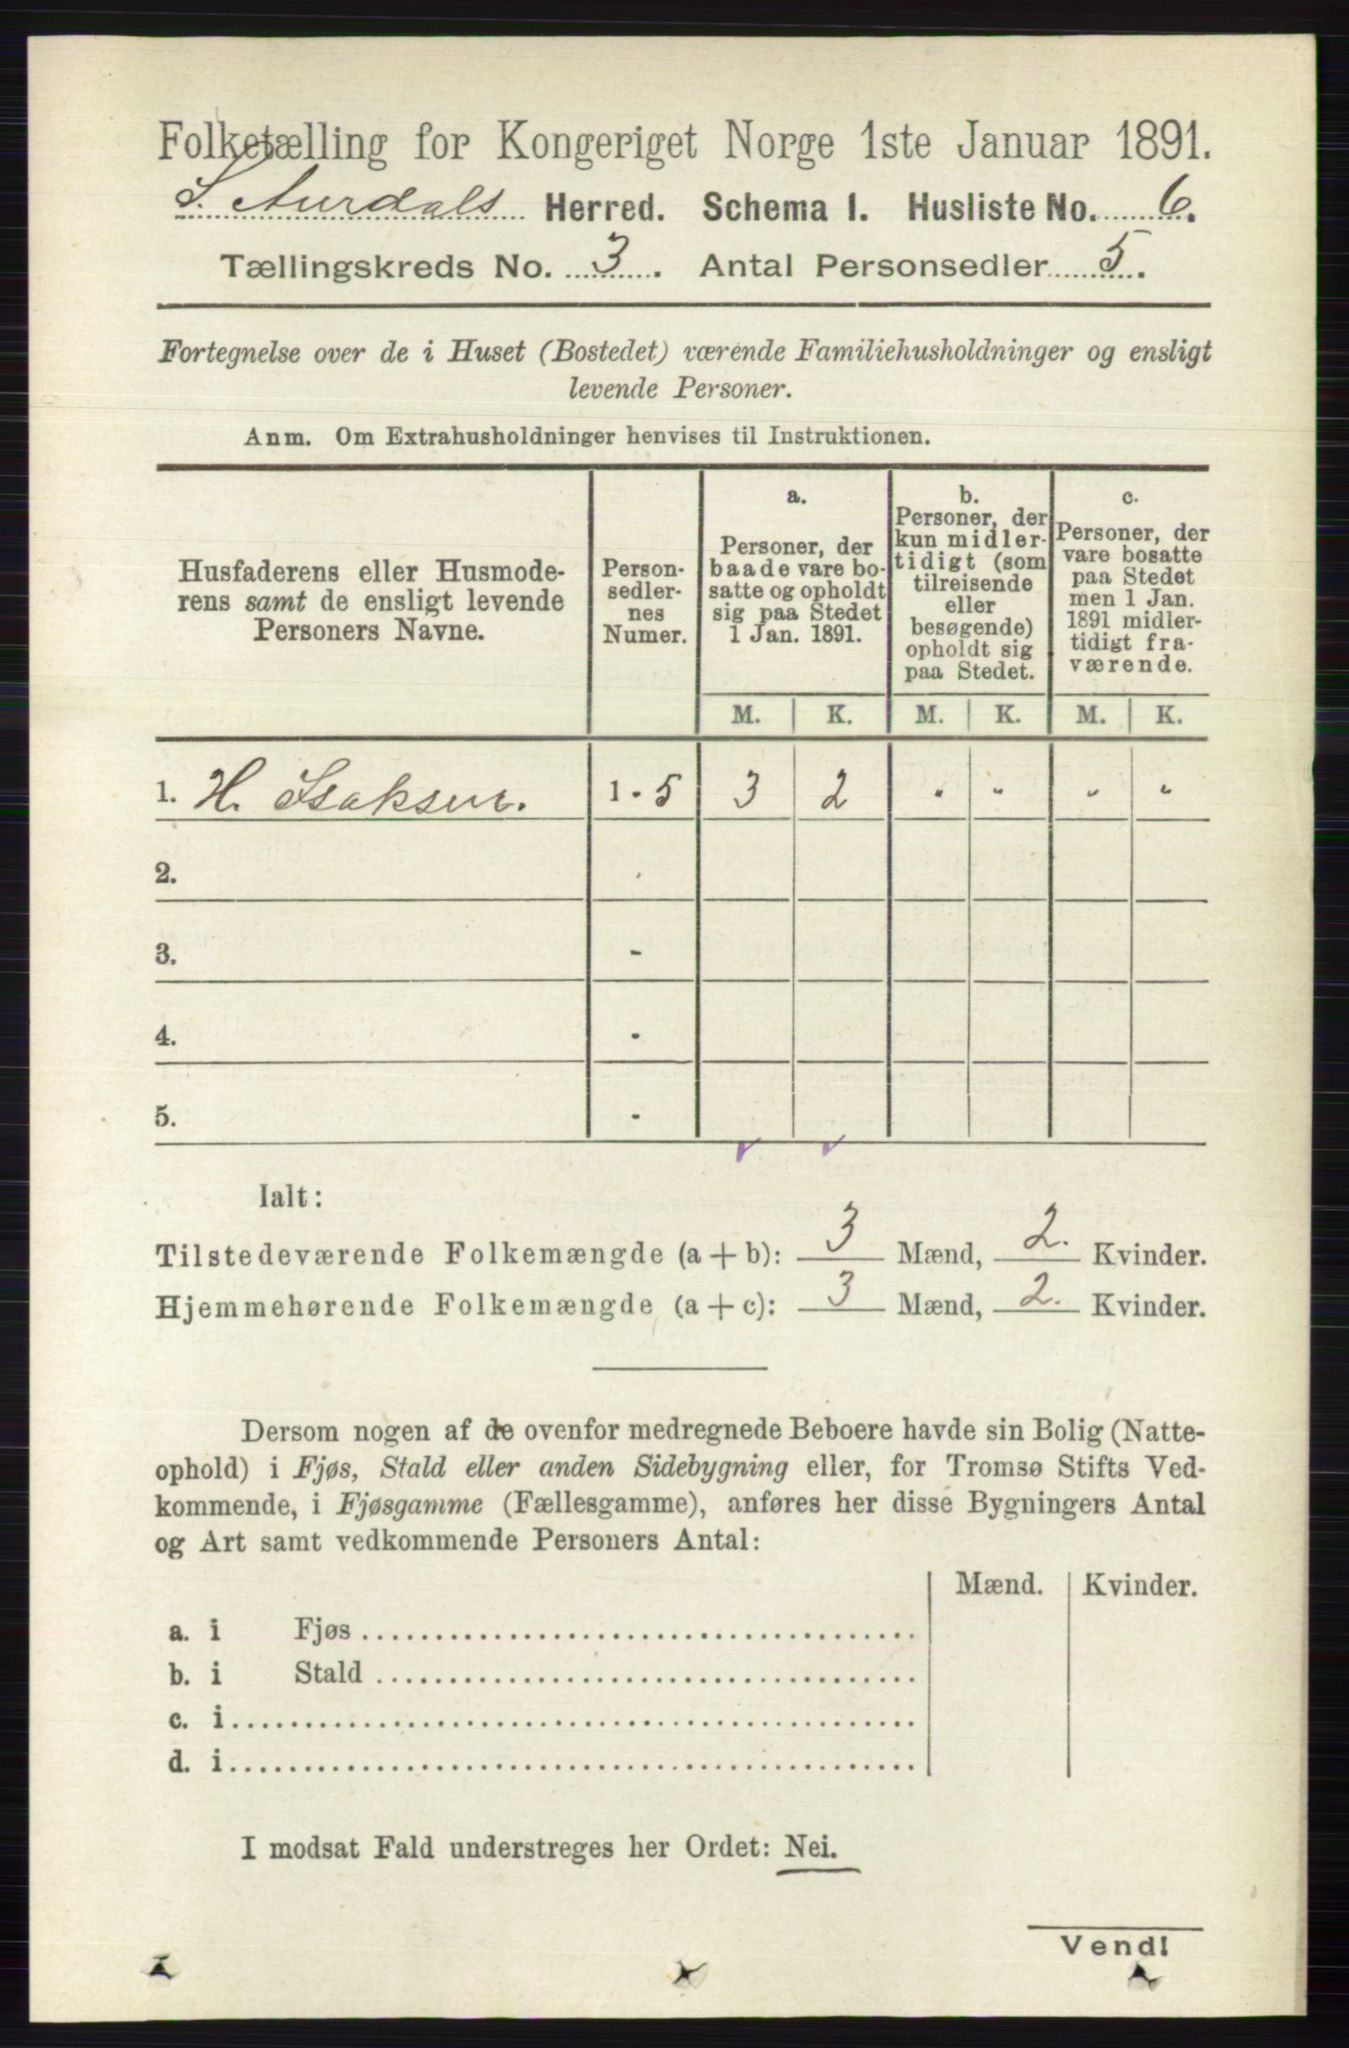 Folketælling for Kongeriget Norge 1ste Januar 1891.
S. Aurdals Herred. Schema 1. Husliste No. 6.
Tællingskreds No. 3. Antal Personsedler 5.
Fortegnelse over de i Huset (Bostedet) værende Familiehusholdninger og ensligt
levende Personer.
Anm. Om Extrahusholdninger henvises til Instruktionen.
Husfaderens eller Husmode-
rens samt de ensligt levende
Personers Navne.
Person-
sedler-
nes
Numer.
a.
Personer, der
baade vare bo-
satte og opholdt
sig paa Stedet
1 Jan. 1891.
b.
Personer, der
kun midler-
tidigt (som
tilreisende
eller
besøgende)
opholdt sig
paa Stedet.
c.
Personer, der
vare bosatte
paa Stedet
men 1 Jan.
1891 midler-
tidigt fra-
værende.
M. K. M. K. M. K.
1. H. Isaksen. 1 - 5 3 2 " " " "
2.
3. -
4. -
5. -
Ialt:
Tilstedeværende Folkemængde (a + b): 3 Mænd, 2. Kvinder.
Hjemmehørende Folkemængde (a + c): 3 Mænd, 2. Kvinder.
Dersom nogen af de ovenfor medregnede Beboere havde sin Bolig (Natte-
ophold) i Fjøs, Stald eller anden Sidebygning eller, for Tromsø Stifts Ved-
kommende, i Fjøsgamme (Fællesgamme), anføres her disse Bygningers Antal
og Art samt vedkommende Personers Antal:
Mænd. Kvinder.
a. i Fjøs
b. i Stald
c. i
d. i
I modsat Fald understreges her Ordet: Nei.
Vend!